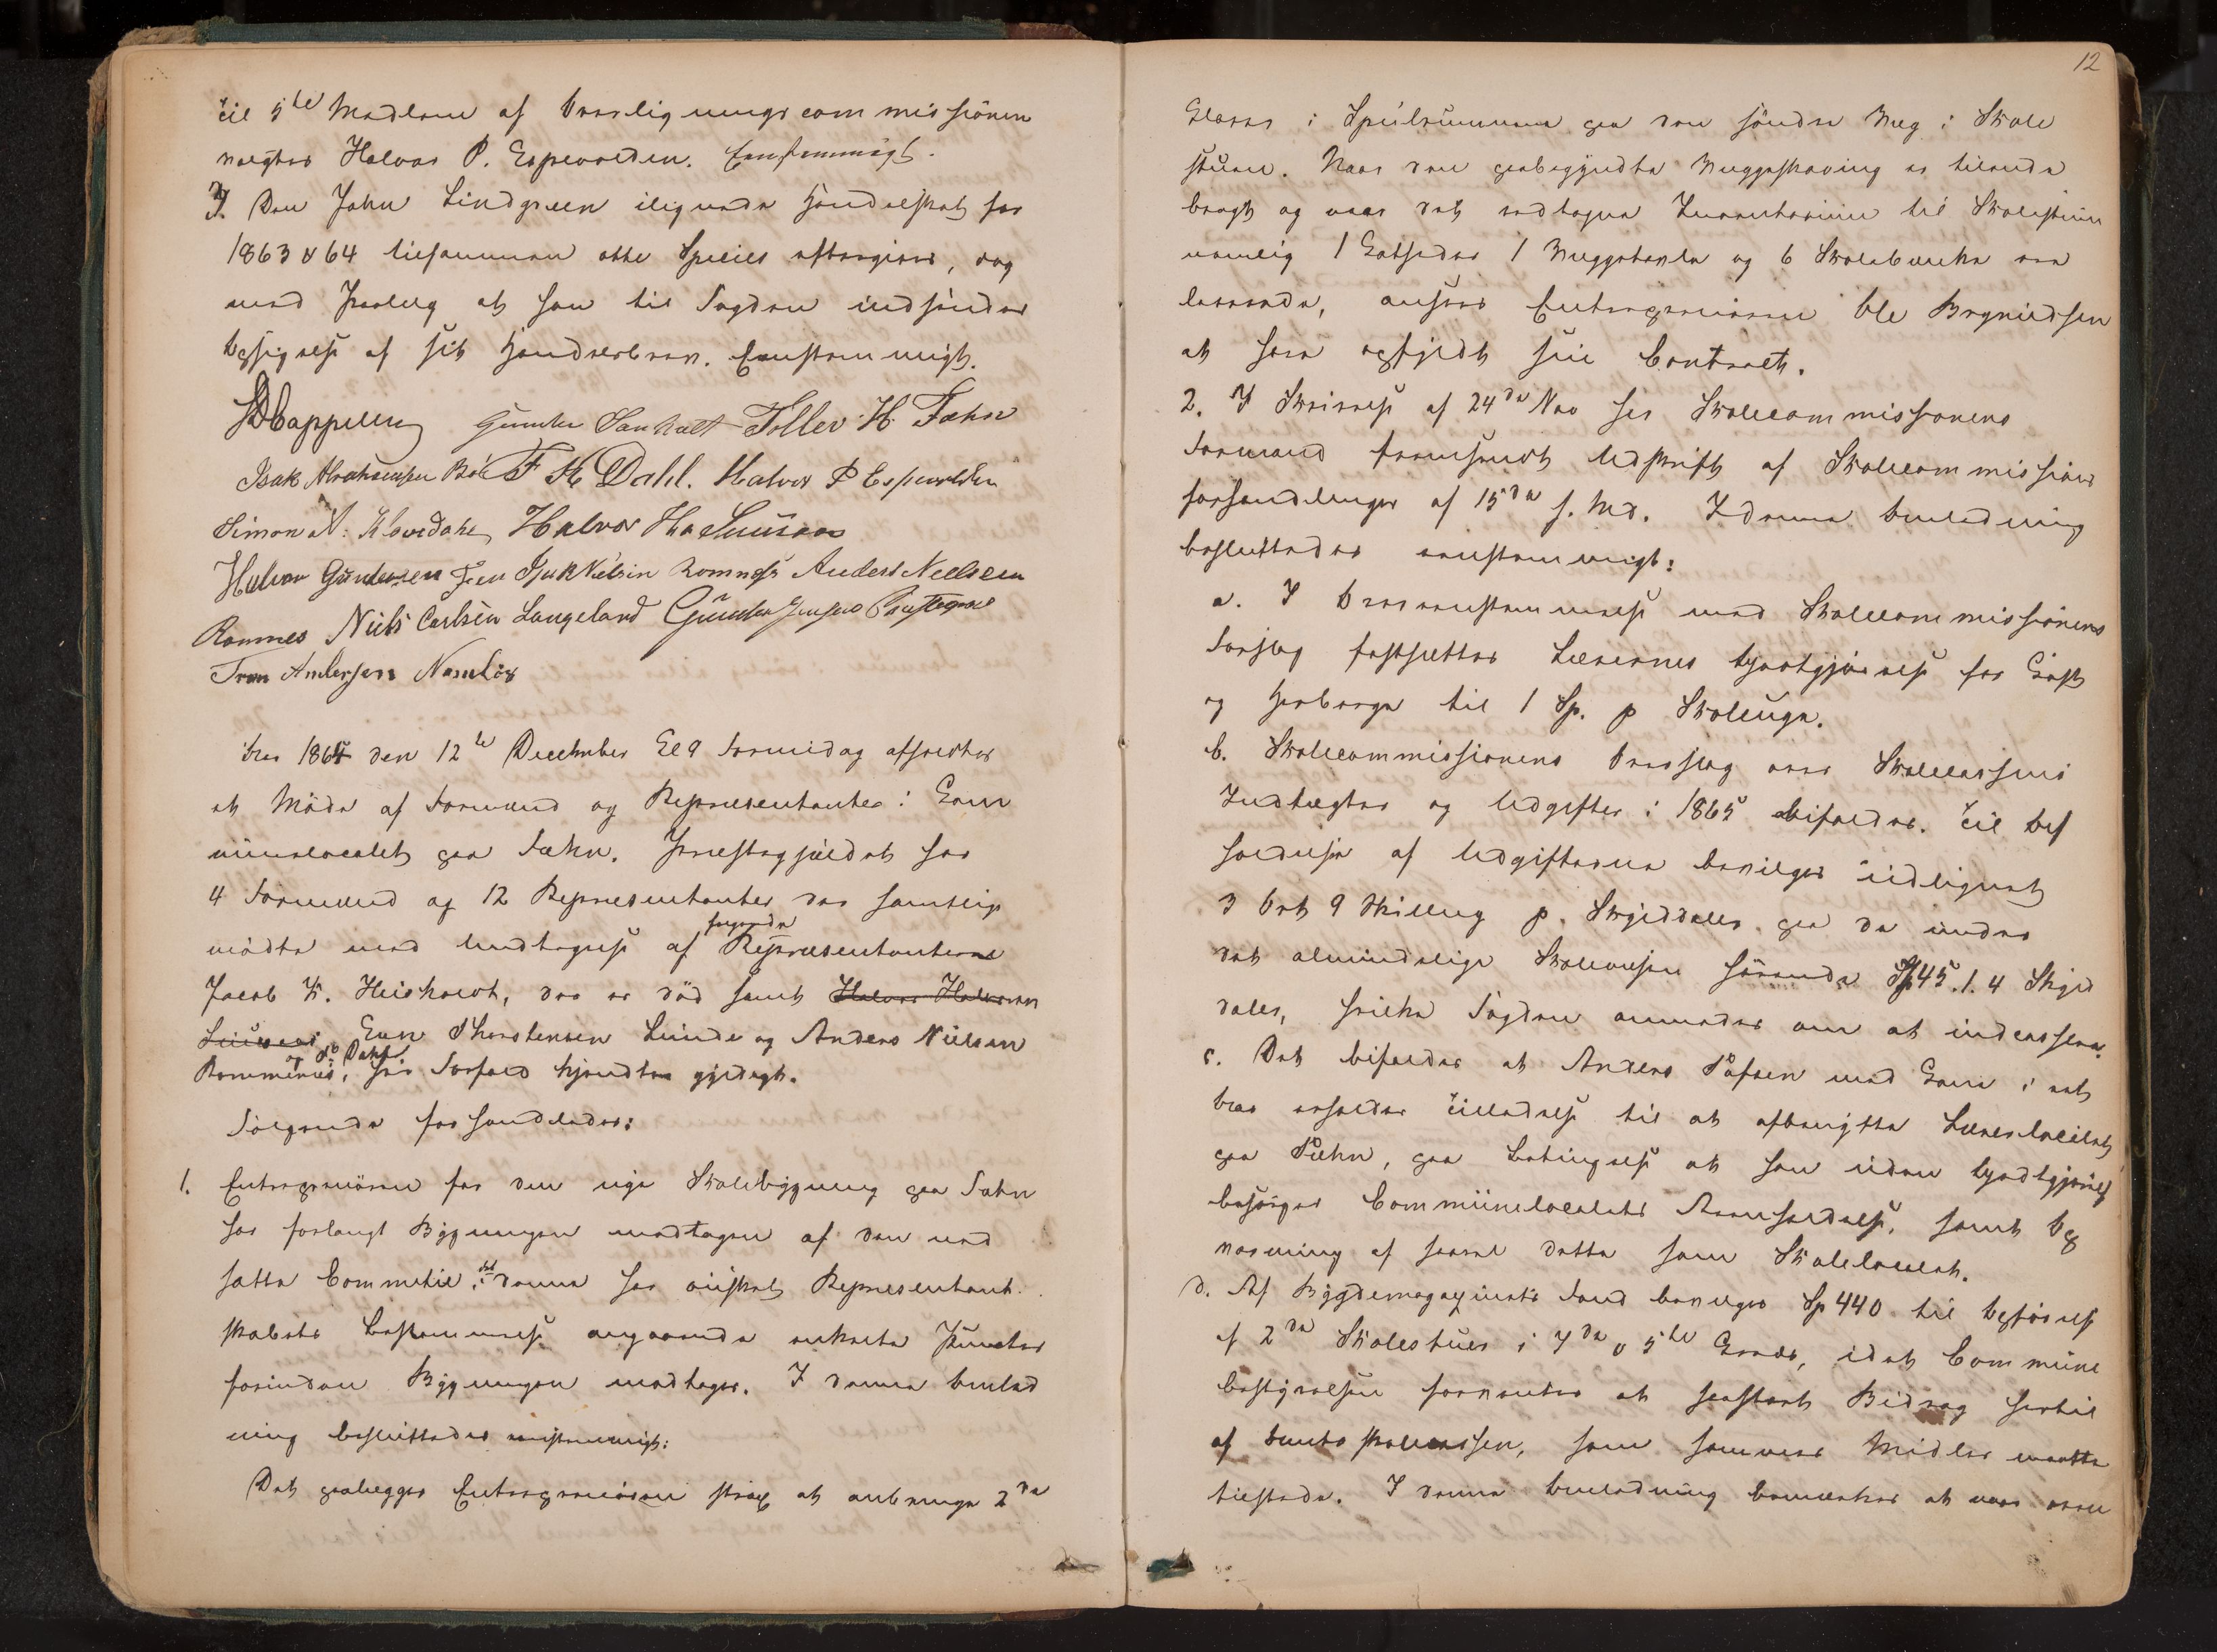 til 5te Medlem af Overligningscommissionen
valgtes Halvor P. Espevolden. Eenstemmigt.
7. Den John Lindgreen ilignede Handelsskat for
1863 & 64 tilsammen otte Species eftergives, dog
med Paalæg at han til Fogden indsender
Opsigelse af sit Handelsbrev. Eenstemmigt.
D Cappelen Gunder Sanholt Tollev H. Fæhn
Isak Abrahamsen Bø F H Dahl. Halvor P Espevolden
Simon N. Klovdahl Halvor Ha Luuraas
Halvor Gundersen Isak Nielsin Romnes Anders Nielsen
Romnes Niels Carlsen Langeland Gunder Jensen
Anders
Aar 1864 den 12te December Kl 9 Formidag afholdtes
et Møde af Formænd og Repræsentanter i Com
munelocalet paa Fæhn. Præstegjældet har
4 Formænd og 12 Repræsentanter der samtlige
mødte med Undtagelse af følgende Repræsentanterne
Jacob K. Heiskoldt, der er død samt Halvor Halvorsen
Luuraas Even Thorstensen Lunde og Anders Nielsen
Romnes, og Do Dahl. har Forfald kjendtes gyldigt.
Følgende forhandledes:
1. Entrepreneuren for den nye Skolebygning paa Fæhn
har forlangt Bygningen modtagen af den ned
satte Committee; denne har ønsket Repræsentant
skabets Bestemmelse angaaende enkelte Puncter
forinden Bygningen modtages. I denne Anled
ning besluttedes eenstemmigt:
Det paalægges Entrepreneuren strax at anbringe 2de
12
Glasser i Speilrummene paa den søndre Væg i Skole
stuen. Naar den paabegyndte Vægpaskaving er tilende
bragt og naar det vedtagne Inventarium til Skolestuen
nemlig 1 Catheder 1 Vægtavle og 6 Skolebænke ere
leverede, ansees Entrepreneuren Ole Brynildsen
at have opfyldt sin Contract.
2. I Skrivelse af 24de Nov har Skolecommissionens
Formand fremsendt Udskrift af Skolecommissions
forhandlinger af 15de s. Md. I denne Anledning
besluttedes eenstemmigt:
a. I Overeenstemmelse med Skolecommissionens
Forslag fastsættes Lærernes Godtgjørelse for Kost
og Herberge til 1 Sp. p Skoleuge.
b. Skolecommissionens Overslag over Skolecassens
Indtægter og Udgifter i 1865 bifaldes. Til Af
holdelse af Udgifterne bevilges udlignet
3 Ort 9 Skilling p. Skylddaler paa de under
det almindelige Skolevæsen hørende Sp 45.1.4 Skyld
daler, hvilke Fogden anmodes om at indcassere.
c. Det bifaldes at Anders Tofsen med Kone i et
Aar erholder Tilladelse til at afbenytte Lærerlocalet
paa Fæhn, paa Betingelse at han uden Godtgjørelse
besørger Communelocalets Reenholdelse, samt Op
varmning af saavel dette som Skolelocalet.
d. Af Bygdemagazinets Fond bevilges Sp 440 til Opførelse
af 2de Skolestuer i 4de & 5te Kreds, idet Commune
bestyrelsen forventer at faastørst Bidrag hertil
af Amtsskolecassen, som saavidt Midler maatte
tilstede. I denne Anledning bemærkes at naar oven